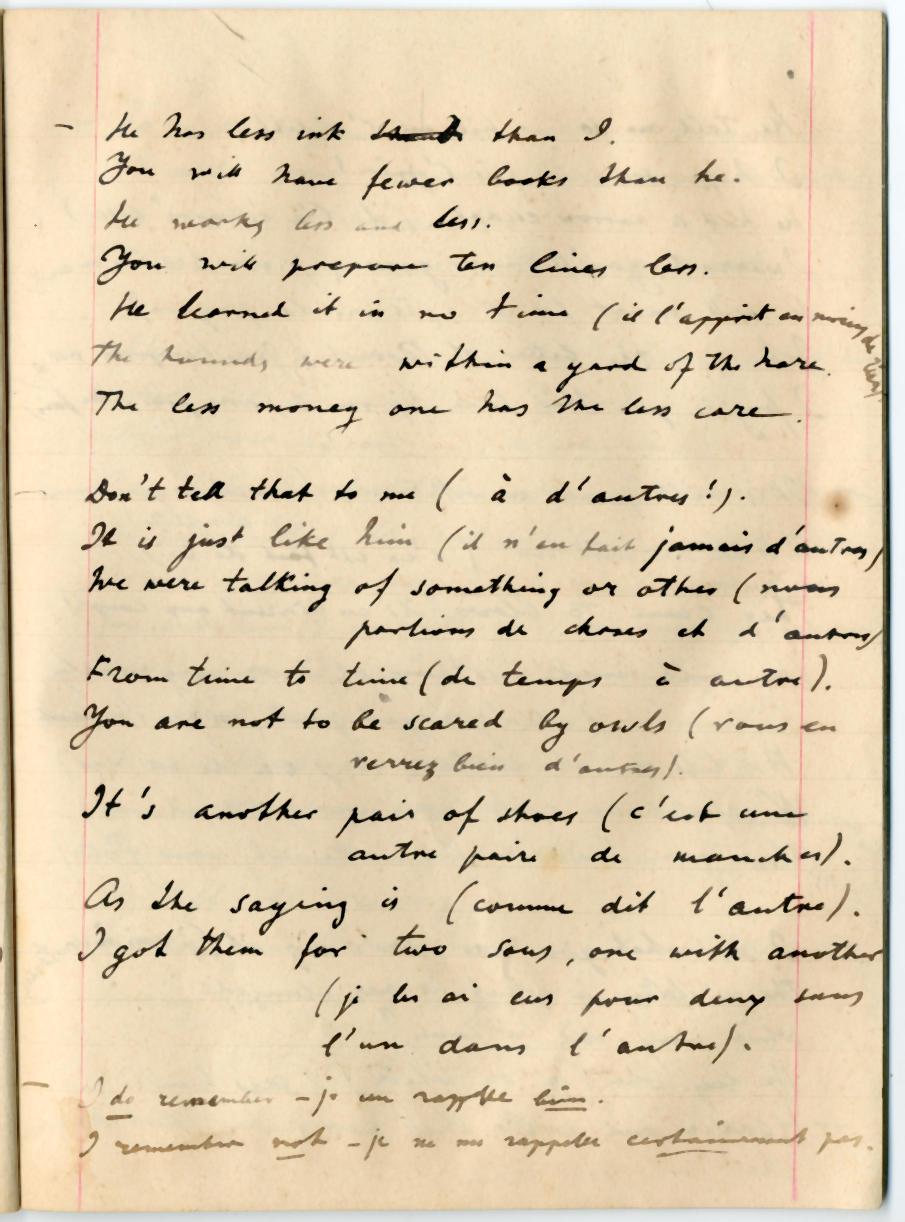 He has less ink than I.
You will have fewer books than he.
He works less and less.
You will prepare ten lines less.
He learned it in no time (il l'apprit en moins de rien)
The hounds were within a yard of the hare.
The less money one has the less care.
Don't tell that to me (à d'autres!).
It is just like him (il n'en fait jamais d'autres)
We were talking of something or other (nous
parlions de choses et d'autres)
From time to time (de temps à autre).
You are not to be scared by owls (vous en
verrez bien d'autres).
It's another pair of shoes (c'est une
autre paire de manches).
As the saying is (comme dit l'autre).
I got them for two sous, one with another
(je les ai eus pour deux sous
l'un dans l'autre).
I do remember - je me rappelle bien.
I remember not - je ne me rappelle certainement pas.